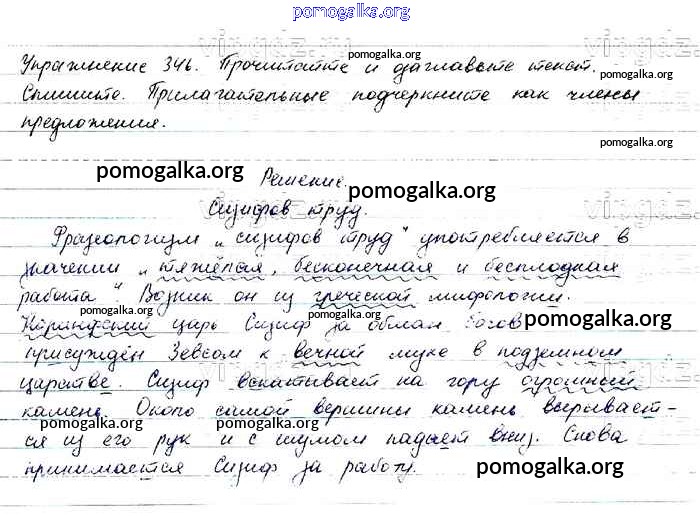 pomogalka.org
Упражнение 346. Прочитайте и озаглавьте текст.
pomogalka.org
pomogalka.org
Спишите. Прилагательные подчеркните как члены
предложения.
pomogalka.org
pomogalka.org
Решение.
pomogalka.org
Сизифов труд.
Фразеологизм „сизифов труд" употребляется в
значении „тяжёлая, бесконечная и бесплодная
работа". Возник он из греческой мифологии.
pomogalka.org
pomogalka.org
pomogalka.org
Коринфский царь Сизиф за обман богов
присуждён Зевсом к вечной муке в подземном
царстве. Сизиф вскатывает на гору огромный
камень. Около самой вершины камень вырывает-
pomogalka.org
pomogalka.org
ся из его рук и с шумом падает вниз. Снова
принимается Сизиф за работу.
pomogalka.org